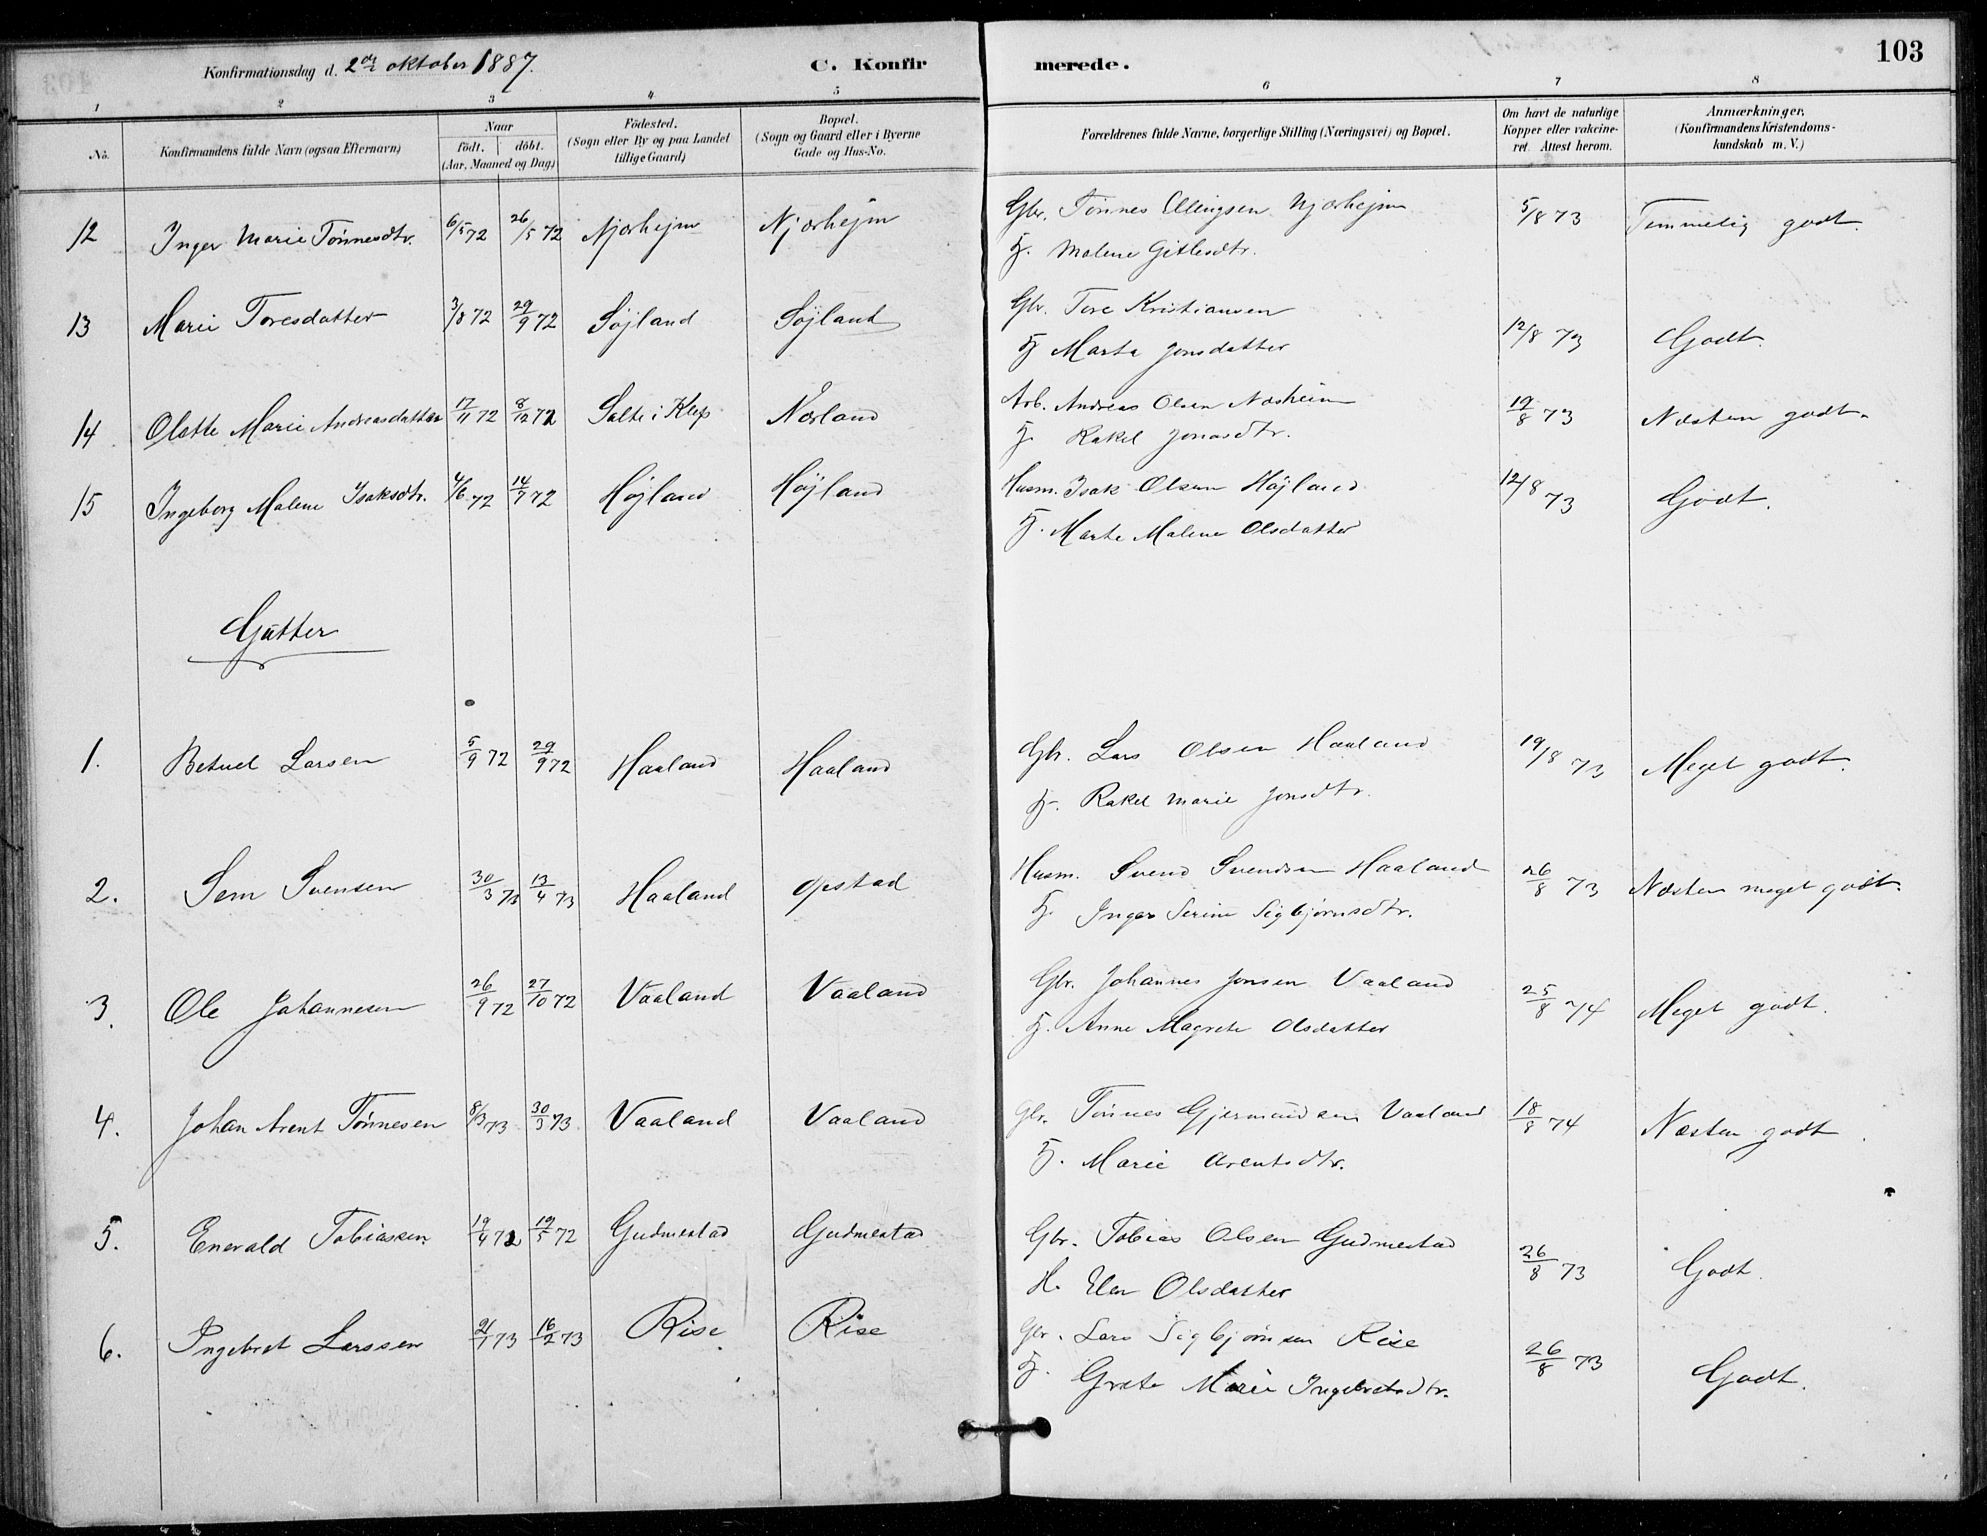 103
Konfirmationsdag d. 2den oktober 1887. C. Konfirmerede.
1 2 3 4 5 6 7 8
No. Konfirmandens fulde Navn (ogsaa Efternavn) Naar födt. döbt. (Aar, Maaned og Dag) Födested. (Sogn eller By og paa Landet tillige Gaard) Bopæl. (Sogn og Gaard eller i Byerne Gade og Hus-No. Forældrenes fulde Navne, borgerlige Stilling (Næringsvei) og Bopæl. Om havt de naturlige Kopper eller vakcineret. Attest herom. Anmærkninger. (Konfirmandens Kristendomskundskab m. V.)
12 Inger Marie Tønnesdtr. 6/5 72 26/5 72 Njærhejm Njærhejm Gbr. Tønnes Ellingsen Njærhejm 5/8 73 Temmelig godt.
H. Malene Gitlesdtr.
13 Marie Toresdatter 3/8 72 29/9 72 Søjland Søjland Gbr. Tore Kristiansen 12/8 73 Godt.
H Marta Jonsdatter
14 Olette Marie Andreasdatter 17/11 72 8/12 72 Salte i Klep Nærland Arb. Andreas Olsen Næsheim 19/8 73 Næsten godt.
H. Rakel Jonasdtr.
15 Ingeborg Malene Isaksdtr. 4/6 72 14/7 72 Højland Højland Husm. Isak Olsen Højland 12/8 73 Godt.
H. Marte Malene Olsdatter
Gutter
1. Betuel Larsen 5/9 72 29/9 72 Haaland Haaland Gbr. Lars Olsen Haaland 19/8 73 Meget godt.
H. Rakel Marie Jonsdtr.
2. Sem Svensen 30/3 73 13/4 73 Haaland Opstad Husm. Svend Svendsen Haaland 26/8 73 Næsten meget godt.
H. Inger Serine Sigbjørnsdtr.
3. Ole Johannesen 26/9 72 27/10 72 Vaaland Vaaland Gbr. Johannes Jonsen Vaaland 25/8 74 Meget godt.
H. Anne Magrete Olsdatter
4. Johan Arent Tønnesen 8/3 73 30/3 73 Vaaland Vaaland Gbr. Tønnes Gjermundsen Vaaland 18/8 74 Næsten godt.
H. Marie Arentsdtr.
5. Enevald Tobiassen 19/4 72 19/5 72 Gudmestad Gudmestad Gbr. Tobias Olsen Gudmestad 26/8 73 Godt.
H. Elen Olsdatter
6. Ingebret Larssen 21/1 73 16/2 73 Rise Rise Gbr. Lars Sigbjørnsen Rise 26/8 73 Godt.
H. Grete Marie Ingebretsdtr.